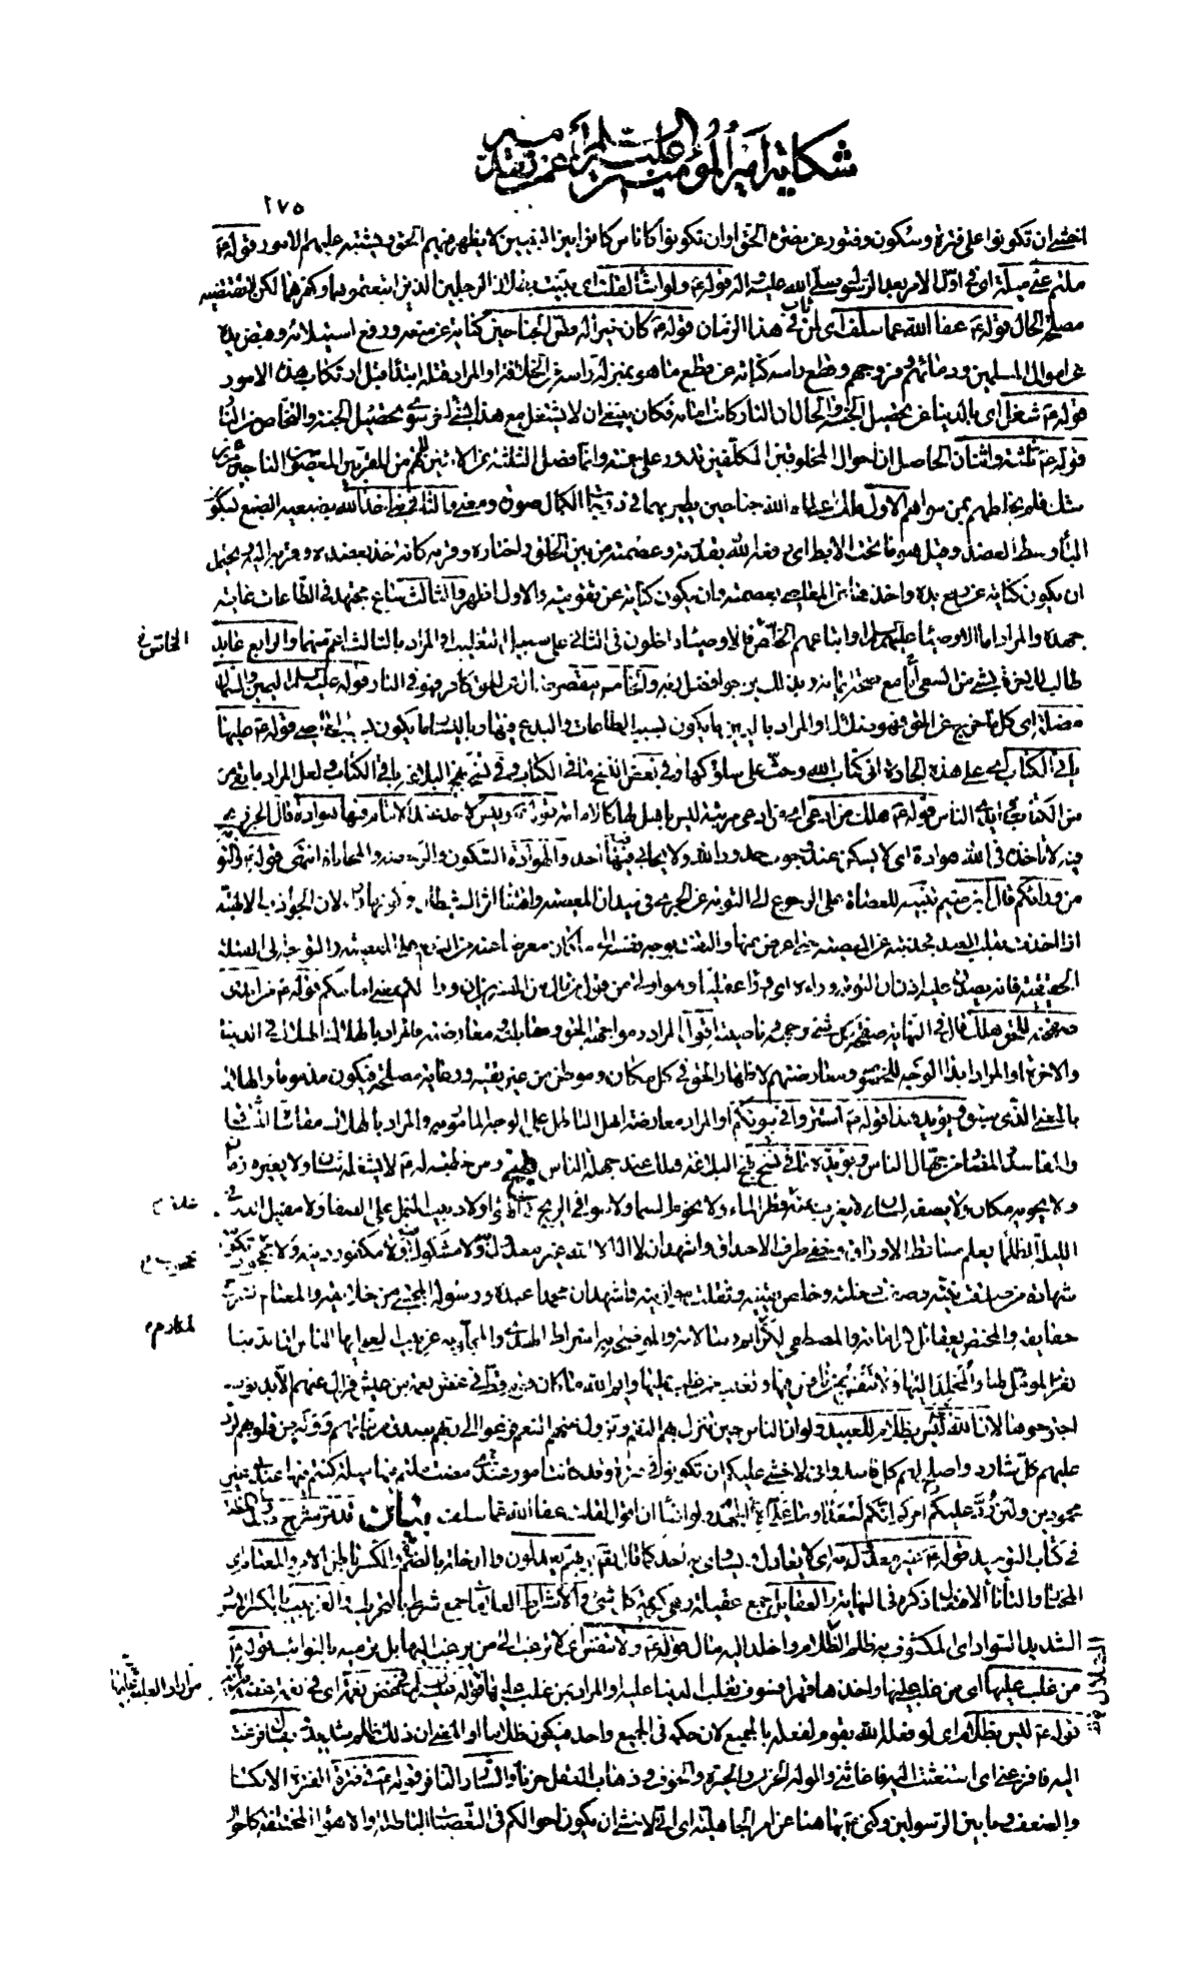 شكاية أمير المؤمنين عليه السلام عمن تقدمه
١٧٥
اخشى ان تكونوا على فترة وسكون وفتور عن نصرة الحق او ان تكونوا كاناس كانوا بين النبيين لا يظهر فيهم الحق ويشتبه عليهم الامور قوله ع
ملتم عنى ميلة اى فى اول الامر بعد الرسول صلى الله عليه واله قوله ع ولو اشاء لقلت اى بينت بطلان الرجلين الذين اتبعتموهما وكفرهما لكن لا تقتضيه
مصلحة الحال قوله ع عفا الله عما سلف اى لمن تاب فى هذا الزمان قوله ع كان خيرا له قص الجناحين كناية عن منعه ورفع استيلائه وقبض يده
عن اموال المسلمين ودمائهم وفروجهم وقطع راسه كناية عن قطع ما هو بمنزلة راسه من الخلافة او المراد قتله ابتداء قبل ارتكاب هذه الامور
قوله ع شغل اى بالدنيا عن تحصيل الجنة والحال ان النار كانت امامه فكان ينبغى ان لا يشتغل مع هذا بشىء اخر سوى تحصيل الجنة والتخلص من النار
قوله ع ثلثة واثنان الحاصل ان احوال المخلوقين المكلفين تدور على خمسة وانما فصل الثلثة عن الاثنين لانهم من المقربين المعصومين الناجين من غير
شك فلم يخلطهم بمن سواهم الاول ملك اعطاه الله جناحين يطير بهما فى درجات الكمال صورة ومعنى والثانى نبى اخذ الله بضبعيه الضبع بسكون
الباء وسط العضد وقيل هو ما تحت الابط اى رفعه الله بقدرته وعصمته من بين الخلق واختاره وقربه كانه اخذ بعضده وقربه اليه ويحتمل
ان يكون كناية عن رفع يده واخذها عن المعاصى بعصمته وان يكون كناية عن تقويته والاول اظهر والثالث ساع مجتهد فى الطاعات غاية
جهده والمراد اما الاوصياء عليهم السلام او اتباعهم الخاص فالاوصياء داخلون فى الثانى على سبيل التغليب او المراد بالثالث اعم منهما والرابع عابد
طالب للاخرة بشىء من السعى مع صحة ايمانه وبذلك يرجو فضل ربه والخامس مقصر ضال عن الحق كافر فهو فى النار قوله عليه السلام اليمين والشمال
مضلة اى كل ما خرج عن الحق فهو ضلال او المراد باليمين ما يكون بسبب الطاعات والبدع فيها وباليسار ما يكون بسبب المعاصى قوله ع عليها
باقى الكتاب اى على هذه الجادة اتى كتاب الله وحث على سلوكها وفى بعض النسخ ما فى الكتاب وفى نسخ نهج البلاغة باقى الكتاب ولعل المراد ما بقى من
من الكتاب فى ايدى الناس قوله ع هلك من ادعى اى من ادعى مرتبة ليس باهل لها كالامامة قوله ع وليس لاحد عند الامام فيها هوادة قال الجزرى
فيه لا تاخذه فى الله هوادة اى لا يسكن عند وجوب حدود الله ولا يحابى فيها احدا والهوادة السكون والرخصة والمحاباة انتهى قوله ع والتوبة
من ورائكم قال ابن ميثم تنبيه للعصاة على الرجوع الى التوبة عن الجرى فى ميدان المعصية واقتفاء اثر الشيطان وكونها وراء لان الجواذب الالهية
اذا اخذت بقلب العبد فجذبته عن المعصية حتى اعرض عنها والتفت بوجه نفسه الى ما كان معرضا عنه من الندم على المعصية والتوجه الى القبلة
الحقيقية فانه يصدق عليه اذن ان التوبة وراءه اى وراء عقليا وهو اولى من قول من قال من المفسرين ان وراءكم بمعنى امامكم قوله ع من ابدى
صفحته للحق هلك قال فى النهاية صفحة كل شىء وجهه وناحيته اقول المراد مواجهة الحق ومقابلته ومعارضته فالمراد بالهلاك الهلاك فى الدنيا
والاخرة او المراد ابداء الوجه للخصوم ومعارضتهم لاظهار الحق فى كل مكان وموطن من غير تقية ورعاية مصلحة فيكون مذموما والهلاك
بالمعنى الذى سبق ويؤيد هذا قوله ع استتروا فى بيوتكم او المراد معارضة اهل الباطل على الوجه المامور به والمراد بالهلاك مقاساة المشاق
والمفاسد من جهال الناس ويؤيده ما فى نسخ نهج البلاغة هلك عند جهلة الناس نهج ومن خطبة له ع لا يشغله شان ولا يغيره زمان
ولا يحويه مكان ولا يصفه لسان لا يعزب عنه عدد قطر الماء ولا نجوم السماء ولا سوافى الريح فى الهواء ولا دبيب النمل على الصفا ولا مقيل الذر فى
الليلة الظلماء يعلم مساقط الاوراق وخفى طرف الاحداق واشهد ان لا اله الا الله غير معدول به ولا مشكوك فيه ولا مكفور دينه ولا مجحود تكوينه
شهادة من صدقت نيته وصفت دخلته وخلص يقينه وثقلت موازينه واشهد ان محمدا عبده ورسوله المجتبى من خلائقه والمعتام لشرح
حقايقه والمختص بعقائل كراماته والمصطفى لكرائم رسالاته والموضحة به اشراط الهدى والمجلو به غربيب العمى ايها الناس ان الدنيا
تغر المؤمل لها والمخلد اليها ولا تنفس بمن نافس فيها وتغلب من غلب عليها وايم الله ما كان قوم قط فى غض نعمة من عيش فزال عنهم الا بذنوب
اجترحوها لان الله ليس بظلام للعبيد ولو ان الناس حين تنزل بهم النقم وتزول عنهم النعم فزعوا الى ربهم بصدق من نياتهم ووله من قلوبهم لرد
عليهم كل شارد واصلح لهم كل فاسد وانى لاخشى عليكم ان تكونوا فى فترة وقد كانت امور عندى مضت ملتم فيها ميلة كنتم فيها عندى غير
محمودين ولئن رد عليكم امركم انكم لسعداء وما على الا الجهد ولو اشاء ان اقول لقلت عفا الله عما سلف بيان قد مر شرح صدر الخطبة
فى كتاب التوحيد قوله ع غير معدول به اى لا يعادل ويساوى به احد كما قال تعالى بربهم يعدلون والدخلة بالضم والكسر باطن الامر والمعتام اى
المختار والتاء تاء الافتعال ذكره فى النهاية والعقايل جمع عقيلة وهى كريمة كل شىء والاشراط العلامات جمع شرط بالتحريك والغربيب بالكسر الاسود
الشديد السواد اى المكشوف به ظلم الضلال واخلد اليه مال قوله ع ولا تنفس اى لا ترغب الى من يرغب اليها بل ترميه بالنوائب قوله ع
من غلب عليها اى من غلب عليها واخذها قهرا فسوف تغلب الدنيا عليه او المراد بمن غلب عليها من اراد الغلبة عليها قوله فى غض نعمة اى فى نعمة غضة
قوله ع ليس بظلام اى لو فعله الله بقوم لفعله بالجميع لان حكمه فى الجميع واحد فيكون ظلاما او المعنى ان ذلك ظلم شديد ويقال فزعت
اليه فافزعنى اى استغثت اليه فاغاثنى والوله الحزن والحيرة والخوف وذهاب العقل حزنا والشارد النافر قوله ع فى فترة الفترة الانكسار
والضعف وما بين الرسولين وكنى ع بها هنا عن امر الجاهلية اى انى لاخشى ان يكون احوالكم فى التعصبات الباطلة والاهواء المختلفة كاحوال